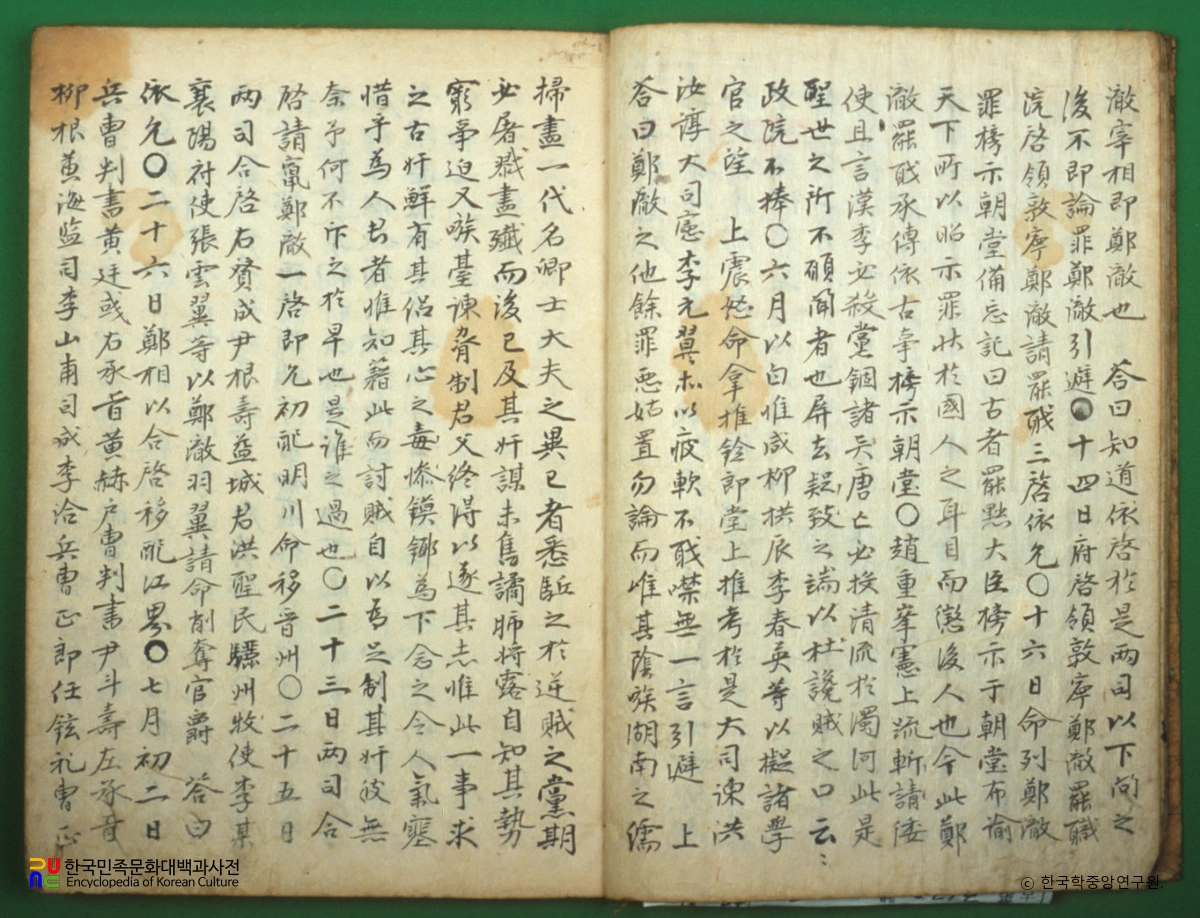 澈宰相即鄭澈也 答曰知道依啓於是兩司以下問之
後不即論罪鄭澈引避○十四日府啓領敦寧鄭澈罷職
院啓領敦寧鄭澈請罷職三啓依允○十六日命列鄭澈
罪榜示朝堂備忘記曰古者罷黜大臣榜示于朝堂布諭
天下所以昭示罪狀於國人之耳目而懲後人也今此鄭
澈罷職承傳依古事榜示朝堂○趙重峯憲上疏斬請倭
使且言漢季必殺黨錮諸賢唐亡必投清流於濁河此是
聖世之所不碩聞者也屏去疑致之端以杜讒賊之口云云
政院不捧○六月以白惟咸柳拱辰李春英等以擬諸學
官之望 上震怒命拿推銓郎堂上推考於是大司諫洪
汝諄大司憲李元翼亦以疲軟不職噤無一言引避 上
答曰鄭澈之他餘罪惡姑置勿論而唯其陰嗾湖南之儒
掃盡一代名卿士大夫之異己者悉駈之於逆賊之黨期
必屠戮盡殲而後已及其奸謀未售譎肺將露自知其勢
窮爭迫又嗾臺諫脅制君父終得以遂其志惟此一事求
之古奸鮮有其侶其心之毒慘鏌鎁爲下念之令人氣塞
惜乎為人君者惟知籍此而討賊自以為足制其奸彼無
奈予何不下之於早也是誰之過也○二十三日兩司合
啓請竄鄭澈一啓即允初配明川命移晋州○二十五日
兩司合啓右贊成尹根壽益城君洪聖民驪州牧使李某
襄陽府使張雲翼等以鄭澈羽翼請命削奪官爵 答曰
依允○二十六日鄭相以合啓移配江界○七月初二日
兵曹判書黃廷彧右承旨黃赫戶曹判書尹斗壽左承旨
柳根黃海監司李山甫司成李洽兵曹正郎任鉉礼曹正
한국민족문화대백과사전
Encyclopedia of Korean Culture
© 한국학중앙연구원.